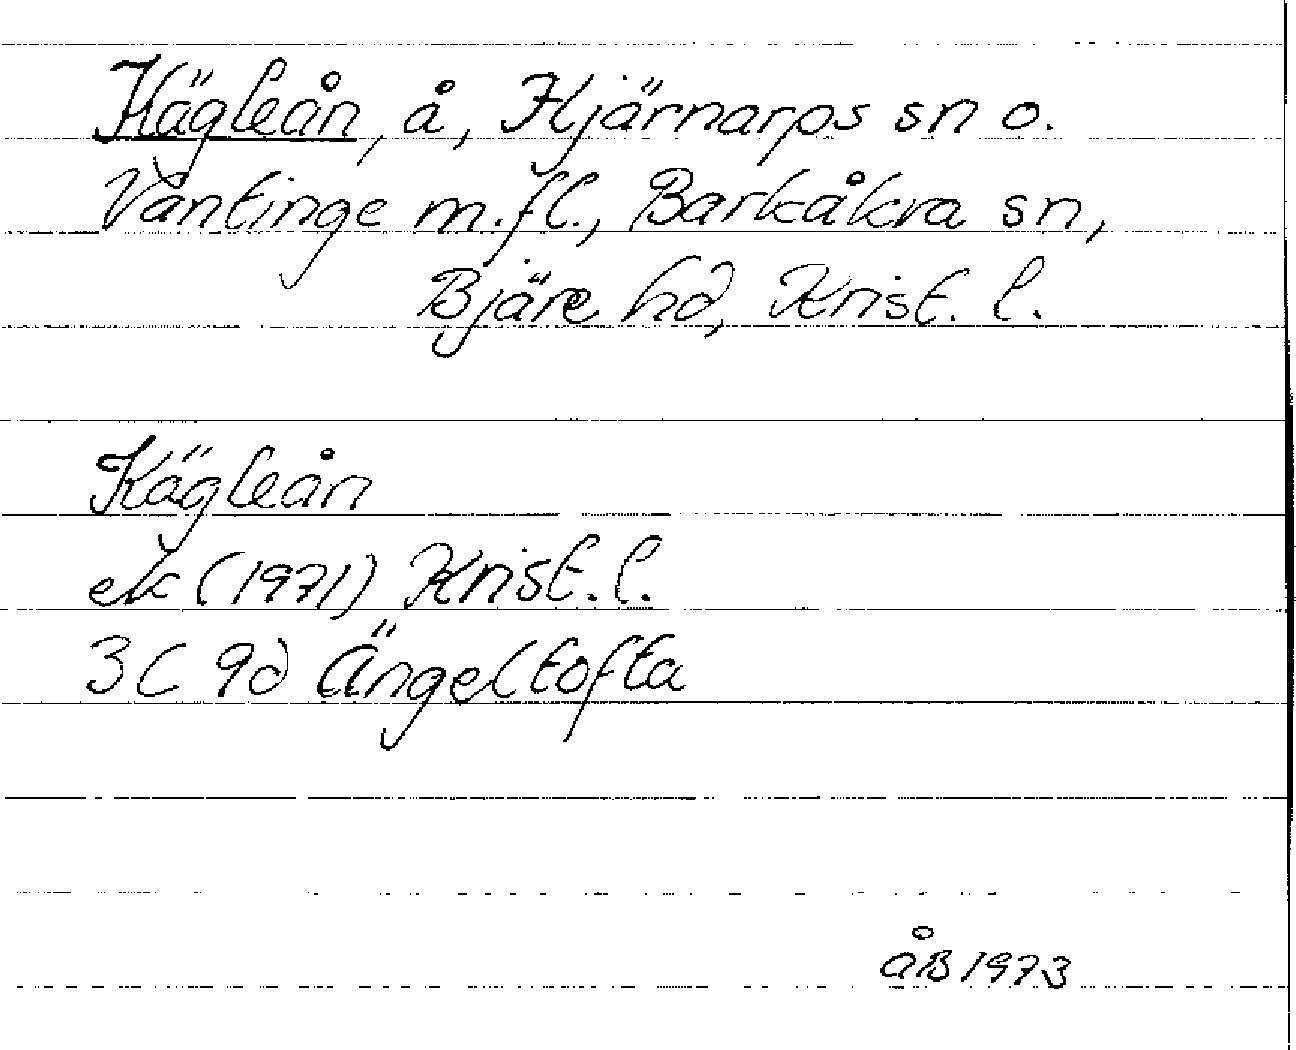 Kägleån, å, Hjärnarps sn o.
Vantinge m.fl., Barkåkra sn,
Bjäre hd, Krist. l.
Kägleån
ek (1971) Krist. l.
3C 9d Ängeltofta
ÅB 1973